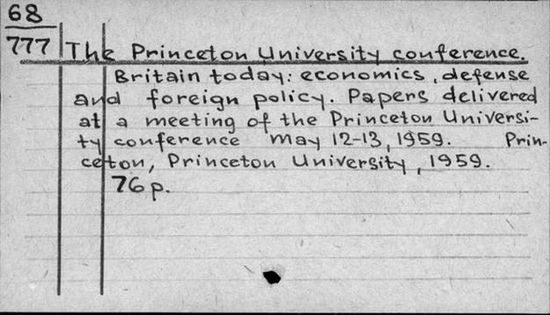 68
777 The Princeton University conference.
Britain today: economics, defense
and foreign policy. Papers delivered
at a meeting of the Princeton Universi-
ty conference May 12-13, 1959. Prin-
ceton, Princeton University, 1959.
76 p.